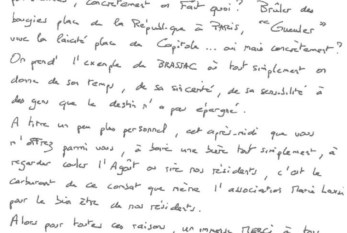 concrètement on fait quoi ? Brûler des
bougies place de la République à PARIS, "Gueuler"
vive la laïcité place du Capitole ... oui mais concrètement ?
On prend l'exemple de BRASSAC où tout simplement on
donne de son temps, de sa sincérité, de sa sensibilité à
des gens que le destin n'a pas épargné.
A titre un peu plus personnel, cet après-midi que vous
m'offrez parmi vous, à boire une bière tout simplement, à
regarder couler l'Agoût ou rire nos résidents, c'est le
carburant de ce combat que mène l'association Marie Louise
pour le bien être de nos résidents.
Alors pour toutes ces raisons, un immense MERCI à tous